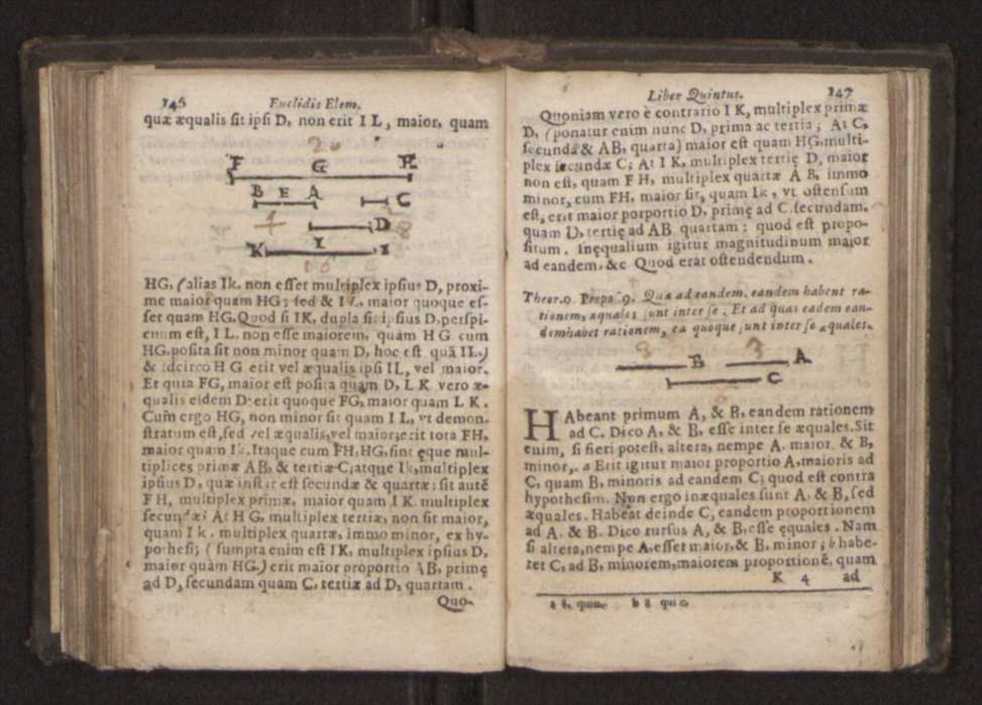 146 Euclidis Elem.
quæ æqualis sit ipsi D, non erit I L, maior, quam
F G H
B E A C
D
K I I
HG, (alias Ik, non esset multiplex ipsius D, proxi-
me maior quam HG; sed & I L, maior quoque es-
set quam HG. Quod si IK, dupla sit ipsius D, perspi-
cuum est, I L, non esse maiorem, quam H G cum
HG, posita sit non minor quam D, hoc est quā IL.)
& idcirco H G erit vel æqualis ipsi IL, vel maior.
Et quia FG, maior est posita quam D, L K vero æ-
qualis eidem D: erit quoque FG, maior quam L K.
Cum ergo HG, non minor sit quam I L, vt demon-
stratum est, sed vel æqualis, vel maior; erit tota FH,
maior quam IK. Itaque cum FH, HG, sint ęque mul-
tiplices primæ AB, & tertiæ C; atque Ik, multiplex
ipsius D, quæ instar est secundæ & quartæ: sit autē
F H, multiplex primæ, maior quam I K. multiplex
secundæ; At H G, multiplex tertiæ, non sit maior,
quam I k, multiplex quartæ, immo minor, ex hy-
pothesi; (sumpta enim est IK, multiplex ipsius D,
maior quam HG.) erit maior proportio AB, primę
ad D, secundam quam C, tertiæ ad D, quartam.
Quo-
Liber Quintus. 147
Quoniam vero è contrario I K, multiplex primæ
D, (ponatur enim nunc D, prima ac tertia; At C,
secunda & AB, quarta) maior est quam HG, multi-
plex secundæ C; At I K, multiplex tertię D, maior
non est, quam F H, multiplex quartæ A B, immo
minor, cum FH, maior sit, quam Ik, vt ostensum
est, erit maior porportio D, primę ad C secundam,
quam D, tertię ad AB quartam: quod est propo-
situm. Inęqualium igitur magnitudinum maior
ad eandem, &c Quod erat ostendendum.
Theor.9. Propo. 9. Quæ ad eandem, eandem habent ra-
tionem, æquales sunt inter se. Et ad quas eadem ean-
dem habet rationem, ea quoque sunt inter se æquales.
B A
C
HAbeant primum A, & B, eandem rationem
ad C. Dico A, & B, esse inter se æquales. Sit
enim, si fieri potest, altera, nempe A, maior, & B,
minor,. a Erit igitur maior proportio A, maioris ad
C, quam B, minoris ad eandem C; quod est contra
hypothesim. Non ergo inæquales sunt A, & B, sed
æquales. Habeat deinde C, eandem proportionem
ad A, & B. Dico rursus A, & B, esse ęquales. Nam
si altera, nempe A, esset maior, & B, minor; b habe-
ret C, ad B, minorem, maiorem proportionē, quam
K 4 ad
a 8. quin. b 8 quin.